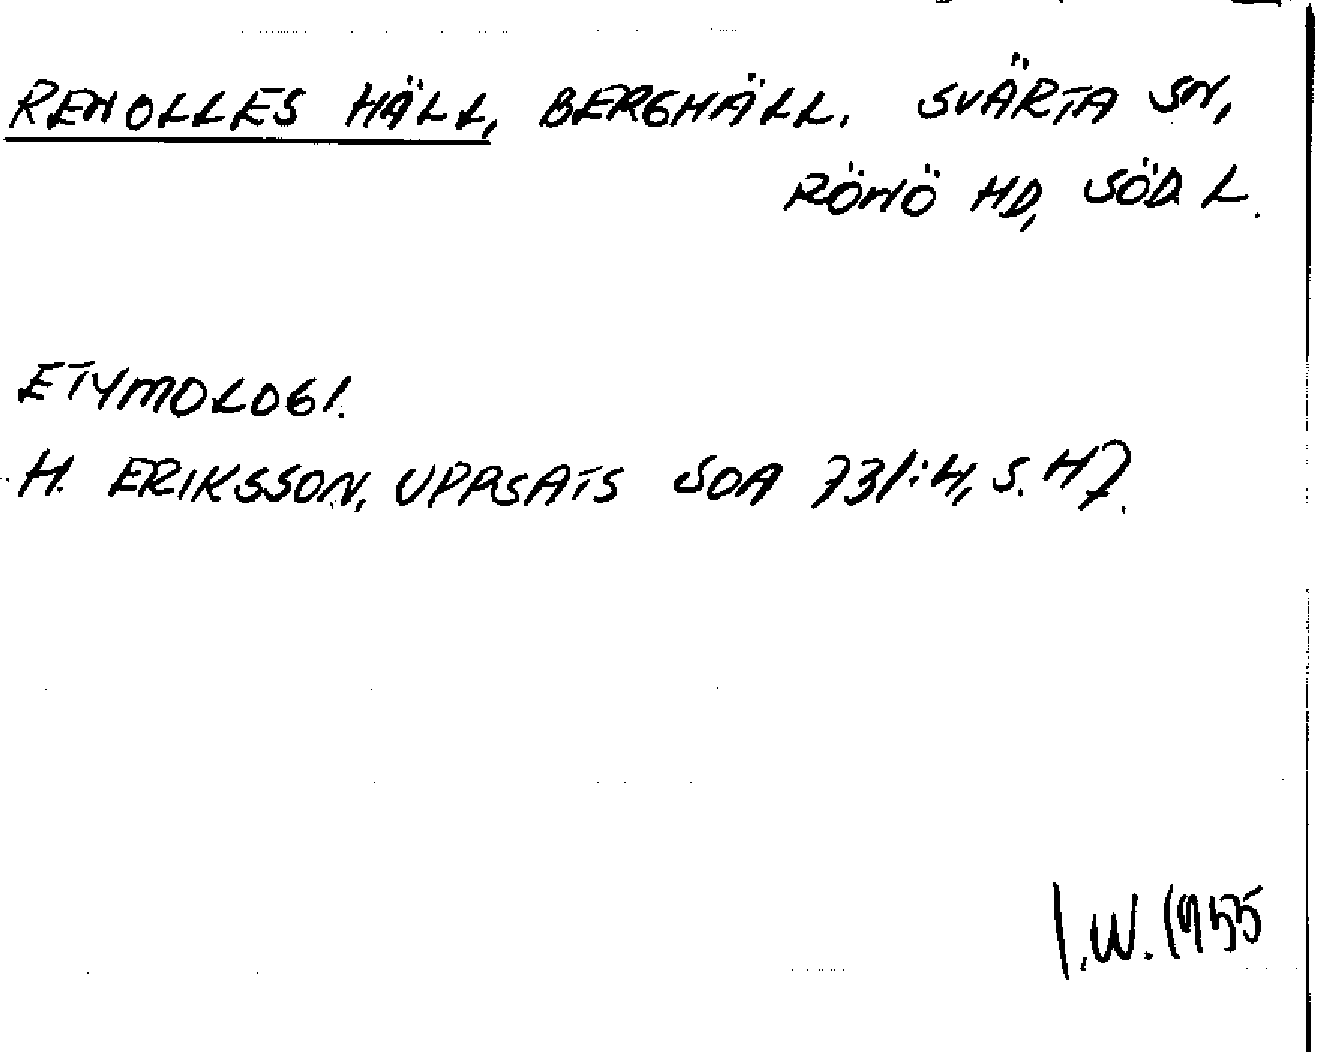 RENOLLES HÄLL, BERGHÄLL. SVÄRTA SN,
RÖNÖ HD, SÖD. L.
ETYMOLOGI.
H. ERIKSSON, UPPSATS SOA 731:4, S. 47.
I.W. 1955